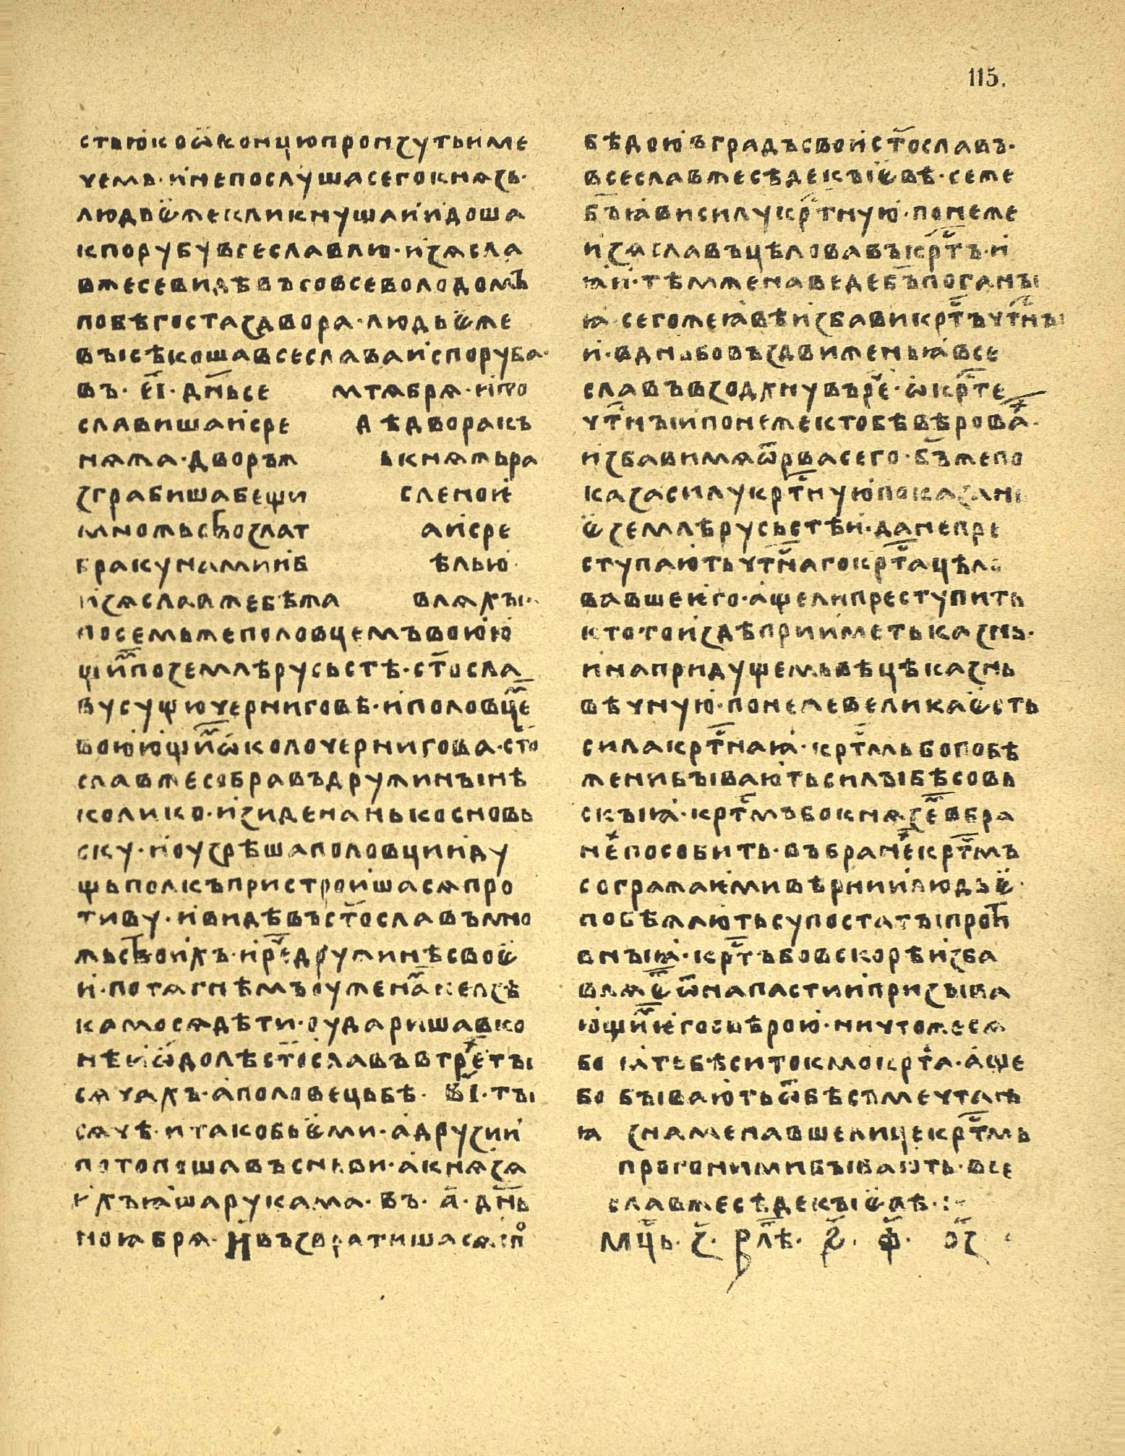 115.
стьюкоѡконцюпронзутьиме
чемь·инепослушасегокнѧзь·
людьѥжекликнушаиидоша
кпорубувсеславлю·изѧсла
вжесевидѣвъсовсеволодомъ
побѣгостаздвора·людьѥже
въісѣкошавсеславаиспоруба·
въ·е҃і·дн҃ьсе мтѧбрѧ·ипо
славишаисре дѣдворакъ
нѧжа·дворъж ькнѧжьра
зграбишабещи сленои
множьствозлат аисре
бракунамииб ѣлью·
изѧславжебѣжа влѧхъі·
посемьжеполовцемъвоюю
щи҃мпоземлѣрусьстѣ·ст҃осла
вусущючерниговѣ·иполовце҃
воюющи҃мѡколочернигова·ст҃о
славжесобравъдружинъінѣ
колико·изиденанькосновь
ску·иоузрѣшаполовциииду
щьполкъпристроишасѧпро
тиву·ивидѣвъст҃ославъмно
жьствоихъ·ире҃дружинѣсвоѥ
и·потѧгнѣмъоуженамнелзѣ
камосѧдѣти·оударишавко
нѣиѡдолѣст҃ославъвтре҃тъі
сѧчахъ·аполовецьбѣ·в҃і·тъі
сѧчѣ·итакобьѥми·адрузии
потопошавъсновиакнѧзѧ
ихъꙗшарукама·въ·а҃·дн҃ь
ноꙗбрѧ·Ивъзвратишасѧсп
бѣдоюъградъсвоист҃ославъ·
всеславжесѣдекъіѥвѣ·сеже
б҃ъꙗвисилукрт҃ную·понеже
изѧславъцѣловавъкрт҃ъ·и
ꙗи·тѣмженаведеб҃ъпоганъі
ꙗ·сегожеꙗвѣизбавикрт҃ъчт҃нъі
и·вдньбовъздвиженьꙗвсе
славъвздохнувъре҃·ѡкрт҃е
чт҃нъіипонежектобѣвѣрова·
избавимѧѿрвасего·б҃ъжепо
казасилукрт҃нуюпоказань
ѥземлѣрусьстѣи·данепре
ступаютьчт҃нагокрт҃ацѣло
вавшеиго·ащелипреступить
кто·тоиздѣприиметьказнь·
инапридущемьвѣцѣказнь
вѣчную·понежевеликаѥсть
силакрт҃наꙗ·крт҃мьбопобѣ
женибъіваютьсилъібѣсовь
скъіꙗ·крт҃мъбокнѧзе҃вбра
не҃пособить·въбране҃крт҃мъ
согражаемивѣрниилюдьѥ·
побѣжаютьсупостатъіпроти
внъіꙗ·крт҃ъбовскорѣизба
влѧѥ҃ѿнапастиипризъіва
ющи҃мегосвѣрою·ничтожесѧ
бо ꙗтьбѣситокмокрт҃а·аще
бо бъіваютьѿбѣсъмечтанѣ
ꙗ знаменавшелицекрт҃мь
прогонимибъівають·все
славжесѣдекъіѥвѣ·:·
мц҃ь·з҃·рл҃ѣ·